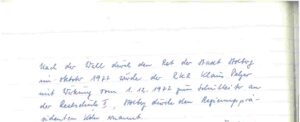 Nach der Wahl durch den Rat der Stadt
im Oktober 1977 wurde der Klaus
mit Wirkung vom 1. 12. 1977 zum Schulleiter an
der Realschule I, durch den Regierungsprä-
sidenten Köln ernannt.